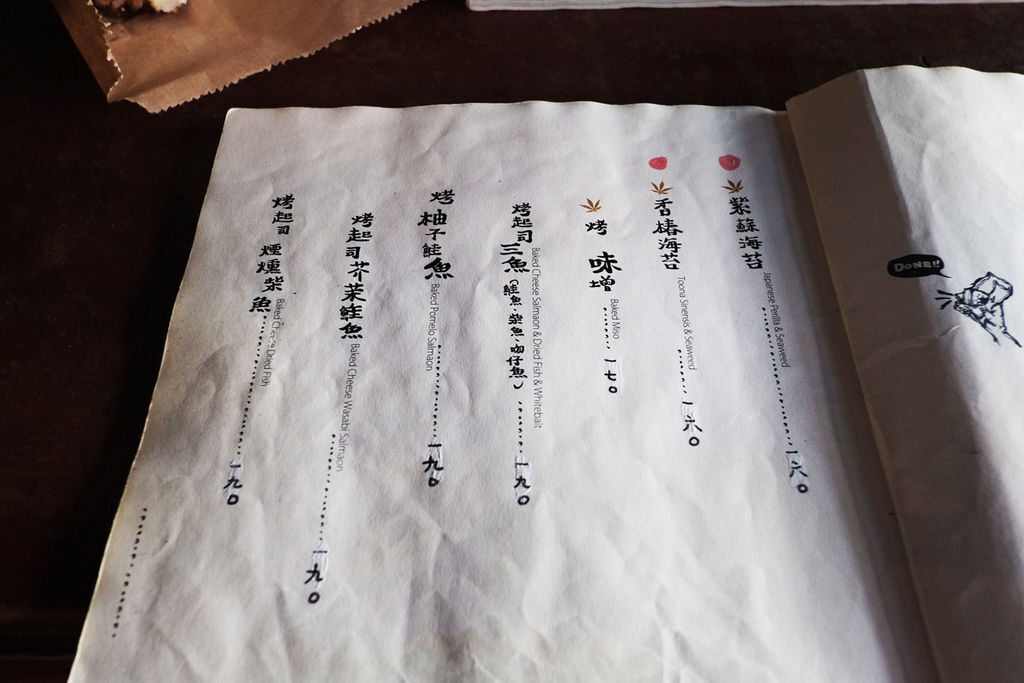 DONE!!
紫蘇海苔 Japanese Perilla & Seaweed 一六〇
香椿海苔 Toona Sinensis & Seaweed 一六〇
烤味增 Baked Miso 一七〇
烤起司三魚(鮭魚、柴魚、吻仔魚) Baked Cheese Salmaon & Dried Fish & Whitebait 一九〇
烤柚子鮭魚 Baked Pomelo Salmaon 一九〇
烤起司芥茉鮭魚 Baked Cheese Wasabi Salmaon 一九〇
烤起司煙燻柴魚 Baked Cheese Dried Fish 一九〇